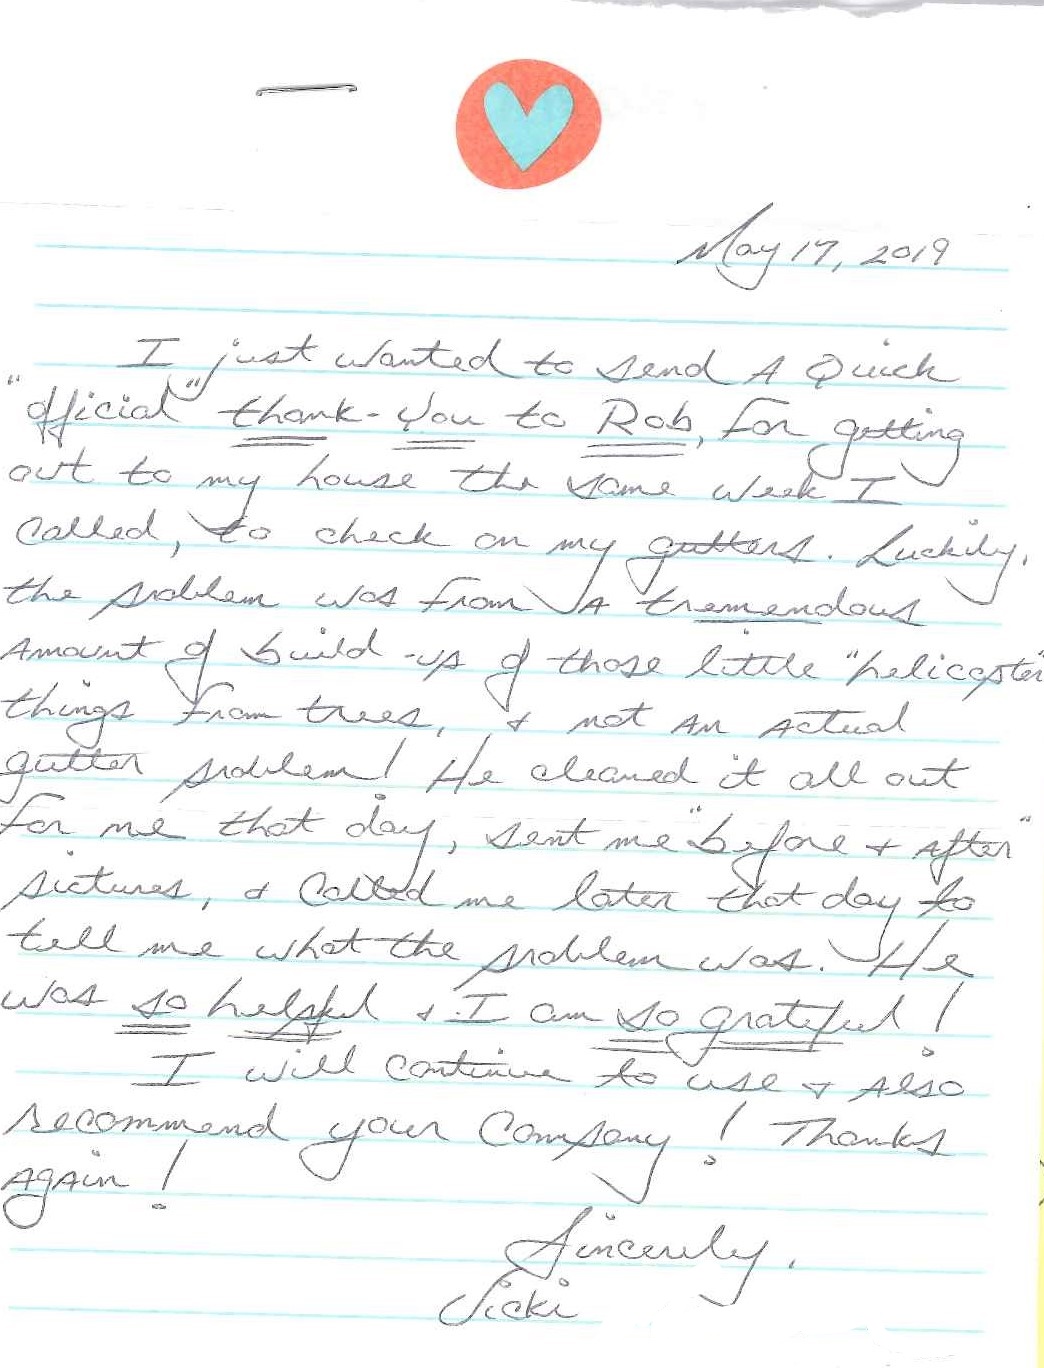 May 17, 2019
I just wanted to send A Quick
"official" thank-you to Rob, for getting
out to my house the same week I
called, to check on my gutters. Luckily,
the problem was from A tremendous
Amount of build-up of those little "helicopter"
things from trees, & not An Actual
gutter problem! He cleaned it all out
for me that day, sent me "before & After"
pictures, & called me later that day to
tell me what the problem was. He
was so helpful & I am so grateful!
I will continue to use & Also
recommend your Company! Thanks
Again!
Sincerely,
Vicki